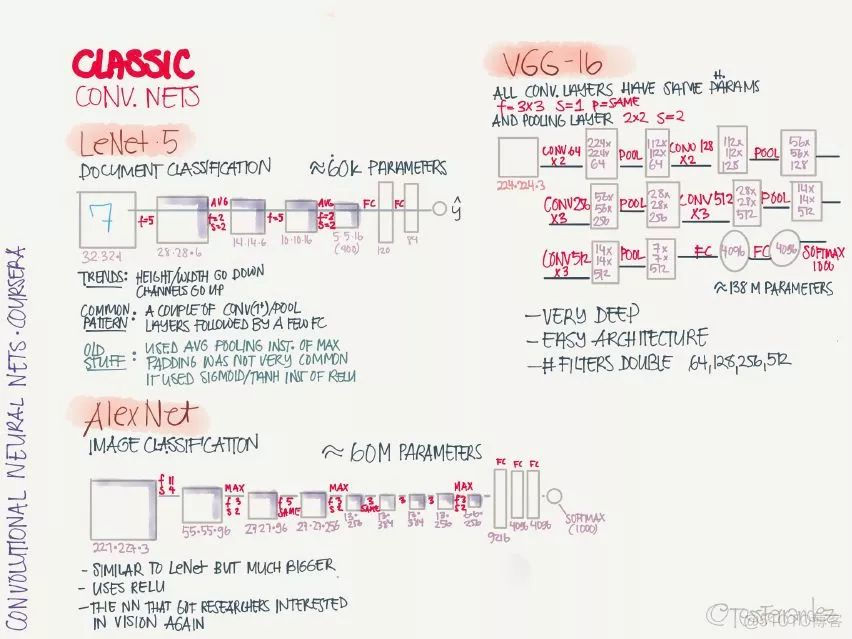 CLASSIC
CONV. NETS
LeNet-5
DOCUMENT CLASSIFICATION ≈60K PARAMETERS
7
f=5
AVG
f=2
S=2
f=5
AVG
f=2
S=2
FC
FC
ŷ
32·32·1
28·28·6
14·14·6
10·10·16
5·5·16
(400)
120
84
TRENDS: HEIGHT/WIDTH GO DOWN
CHANNELS GO UP
COMMON PATTERN: A COUPLE OF CONV(1+)/POOL
LAYERS FOLLOWED BY A FEW FC
OLD STUFF: USED AVG POOLING INST. OF MAX
PADDING WAS NOT VERY COMMON
IT USED SIGMOID/TANH INST OF RELU
AlexNet
IMAGE CLASSIFICATION ≈ 60M PARAMETERS
f 11
S 4
MAX
f 3
S 2
f 5
SAME
MAX
f 3
S 2
3
SAME
3
3
MAX
f 3
S 2
FC
FC
FC
227·227·3
55·55·96
27·27·96
27·27·256
13·
256
13·
384
13·
384
13·
256
6·6·
256
9216
4096
4096
SOFTMAX
(1000)
- SIMILAR TO LeNet BUT MUCH BIGGER
- USES RELU
- THE NN THAT GOT RESEARCHERS INTERESTED
IN VISION AGAIN
VGG-16
ALL CONV. LAYERS HAVE SAME H. PARAMS
f=3X3 S=1 P=SAME
AND POOLING LAYER 2X2 S=2
224·224·3
CONV 64
X2
224x
224x
64
POOL
112x
112x
64
CONV 128
X2
112x
112x
128
POOL
56x
56x
128
CONV 256
X3
56x
56x
256
POOL
28x
28x
256
CONV 512
X3
28x
28x
512
POOL
14x
14x
512
CONV 512
X3
14x
14x
512
POOL
7x
7x
512
FC
4096
FC
4096
SOFTMAX
1000
≈138 M PARAMETERS
- VERY DEEP
- EASY ARCHITECTURE
- # FILTERS DOUBLE 64,128,256,512
CONVOLUTIONAL NEURAL NETS · COURSERA
©TessFerrandez